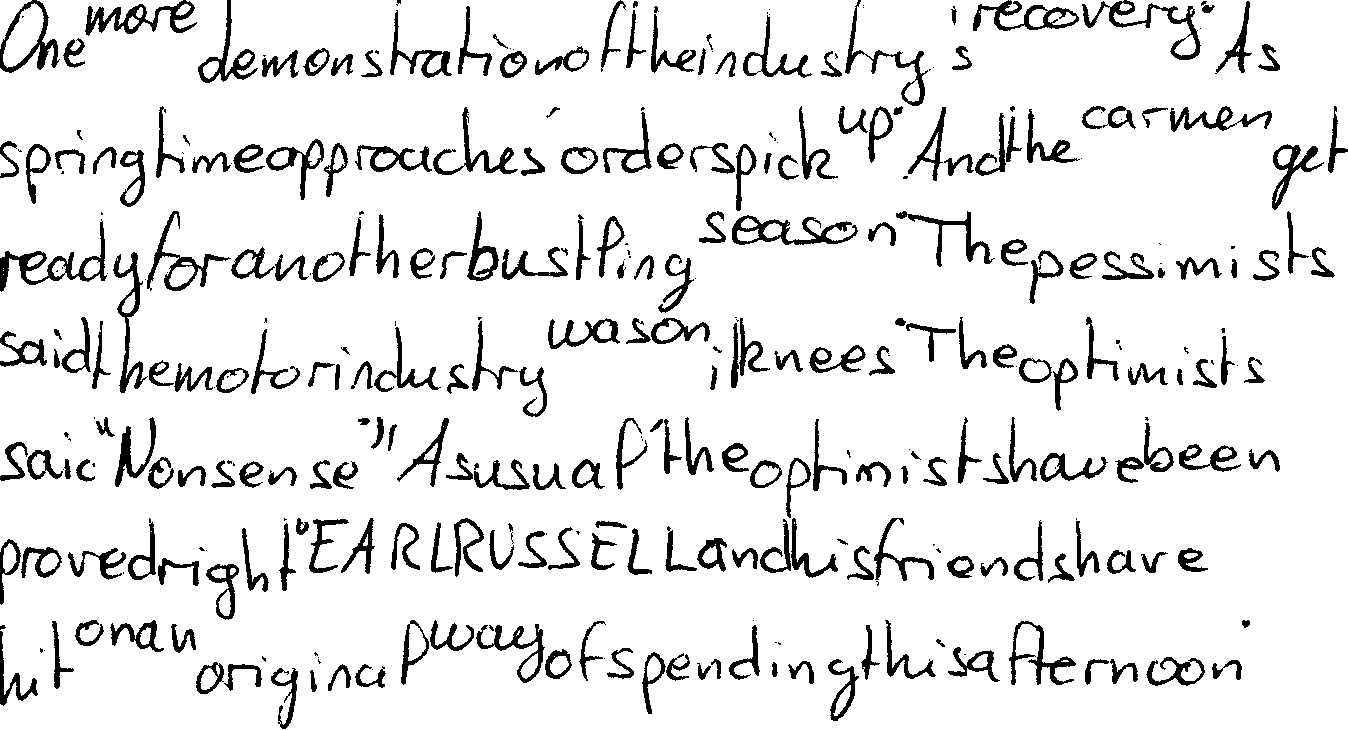 One more demonstration of the industry's recovery. As
springtime approaches, orders pick up. And the car men get
ready for another bustling season. The pessimists
said the motor industry was on its knees. The optimists
said "Nonsense". As usual, the optimists have been
proved right. EARL RUSSELL and his friends have
hit on an original way of spending this afternoon.